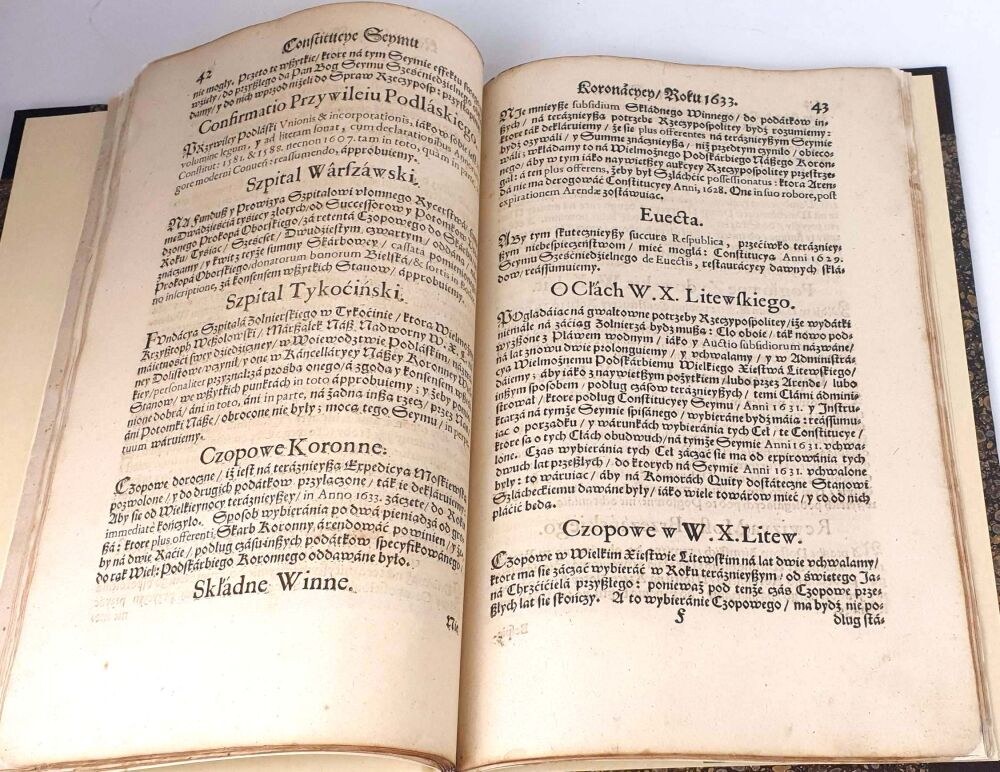 Constitucye Seymu
42
nie mogły. Przeto te wßytkie/ ktore ná tym Seymie effektu
wzięły/ do przyßłego da Pan Bog Seymu Sześćniedzielnego
damy/ y do nich wprzod niżeli do Spraw Rzeczyposp: przystąpi
Confirmatio Przywileiu Podláskiego.
PRzywiley Podláski Vnionis & incorporationis, iáko w sobie, in
volumine legum, y ad literam sonat, cum declarationibus
Constitut: 1581. & 1588. necnon 1607. tam in toto, quàm in parte,
gore moderni Conuen: reassumendo, ápprobuiemy.
Szpital Wárſzáwski.
NA Fundusz y Prowizya Szpitalowi vłomnego Rycerstwá
me Dwádzieściá tyśięcy złotych/ od Successorow y Potomkow
dzonego Prokopá Oborskiego/ zá retentá Czopowego do Skárbu
Roku/ Tyśiąc/ Sześćset/ Dwudziestym, czwartym/ oddáne
znáczámy/ y kwit z teyże summy Skárbowey/ cassatá pomienionego
Prokopá Oborskiego/ donatorum bonorum Bielská/ & sortis in
no inscriptione, zá konsensem wßytkich Stanow/ ápprobuiemy.
Szpital Tykoćiński.
FVndácya Szpitalá Zołnierskiego w Tykoćinie/ ktorą Wielmożny
Krzysztoph Wesołowski/ Márßałek Náß Nadworny W. X. L.
máiętnośći swey dziedziczney/ w Woiewodztwie Podláskim, názwáney
Dolistowe/ vczynił/ y onę w Káncelláryey Náßey Koronney
key/ personaliter przyznał: zá prośbą onego/ á zgodą y konsensem wßytkich
Stanow/ we wßytkich punktách in toto ápprobuiemy: y żeby pomienione
dobrá/ áni in toto, áni in parte, ná żadną inßą rzecz/ przez Nas
áni Potomki Náße/ obrocone nie były; mocą tego Seymu/ in perpetuum
wáruiemy.
Czopowe Koronne.
CZopowe doroczne/ iż iest ná teráznieyßą Expedicyą Moskiewską
pozwolone/ y do drugich podátkow przyłączone/ ták ie dekláruiemy:
Aby sie od Wielkieynocy teráznieyßey/ in Anno 1633. záczęte/ do Roku
immediatè kończyło. Sposob wybieránia po dwá pieniądzá od
ßá: ktore plus offerenti, Skárb Koronny árendowáć powinien/ y żeby
by ná dwie Ráćie/ podług czásu inßych podátkow specyfikowánego/
do rąk Wiel: Podskárbiego Koronnego oddawáne było.
Skłádne Winne.
Nie
Koronácyey/ Roku 1633.
43
NIe mnieyße subsidium Skłádnego Winnego/ do podátkow inßych/
ná teráznieyßą potrzebę Rzeczypospolitey bydź rozumiemy:
ktore ták dekláruiemy/ że sie plus offerentes ná teráznieyßym Seymie
bydź ozywáli/ y Summę znácznieyßą/ niż przedtym czyniło/ obiecowáli;
wkłádamy to ná Wielmożnego Podskárbiego Náßego Koronnego/
áby w tym iáko naywiętßey áukcyey Rzeczypospolitey przestrzegał:
á ten plus offerens, żeby był Szláchćic possessionatus: ktora Arendá
nie ma derogowáć Constitucyey Anni, 1628. One in suo robore, post
expirationem Arendæ zostáwuiąc.
Euecta.
ABy tym skutecznieyßy succurs Respublica, przećiwko teráznieyßym
niebespieczeństwom/ mieć mogłá: Constitucyą Anni 1629.
Seymu Sześćniedzielnego de Euectis, restauracyey dawnych skłádow/
reássumuiemy.
O Cłách W. X. Litewſkiego.
POglądáiąc ná gwałtowne potrzeby Rzeczypospolitey/ iże wydátki
niemáłe ná záćiąg żołnierzá bydź mußą: Cło oboie/ ták nowo podwyżßone
z Pławem wodnym/ iáko y Auctio subsidiorum názwáne/
ná lat znowu dwie prolonguiemy/ y vchwalamy/ y w Administrácyą
Wielmożnemu Podskárbiemu Wielkiego Xięstwá Litewskiego/
dáiemy; áby iáko z naywiętßym pożytkiem/ lubo przez Arendę/ lubo
inßym sposobem/ podług czásow teráznieyßych/ temi Cłámi administrował/
ktore podług Constitucyey Seymu/ Anni 1631. y Instruktarzá
ná tymże Seymie spisánego/ wybieráne bydź máią: reássumuiąc
o porządku/ y wárunkách wybieránia tych Ceł/ te Constitucye/
ktore są o tych Cłách obudwuch/ ná tymże Seymie Anni 1631. vchwalone.
Czás wybieránia tych Ceł záczáć sie ma od expirowánia tych
dwuch lat przeßłych/ do ktorych ná Seymie Anni 1631. vchwalone
były: to wáruiąc/ áby ná Komorách Quity dostáteczne Stanowi
Szlácheckiemu dawáne były/ iáko wiele towárow mieć/ y co od nich
płáćić będą.
Czopowe w W. X. Litew.
CZopowe w Wielkim Xięstwie Litewskim ná lat dwie vchwalamy/
ktore ma sie záczáć wybieráć w Roku teráznieyßym/ od świętego Janá
Chrzćićielá przyßłego: ponieważ pod tenże czás Czopowe przeßłych
lat sie skończy. A to wybieránie Czopowego/ ma bydź nie podług
stá-
§